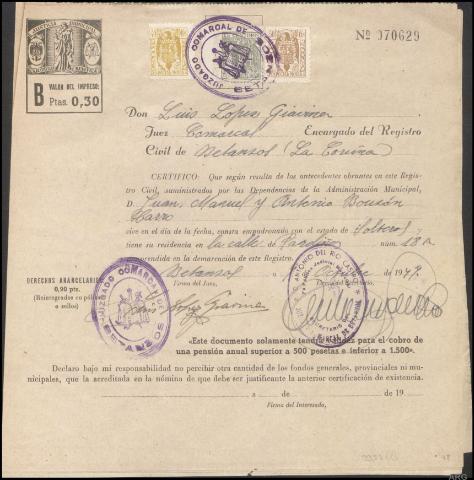 Nº 070629
B VALOR DEL IMPRESO:
Ptas. 0,30
JUZGADO COMARCAL DE
BETANZOS
Don Luis Lopez Giavina
Juez Comarcal Encargado del Registro
Civil de Betanzos (La Coruña)
CERTIFICO: Que según resulta de los antecedentes obrantes en este Regis-
tro Civil, suministrados por las Dependencias de la Administración Municipal,
D. Juan, Manuel y Antonio Bousón
vive en el día de la fecha, consta empadronado con el estado de Solteros y
tiene su residencia en la calle de núm. 18
comprendida en la demarcación de este Registro.
Betanzos a de de 194
Firma del Juez,
DERECHOS ARANCELARIOS
0,90 ptas.
(Reintegrados en pólizas
o sellos)
JUZGADO COMARCAL DE
BETANZOS
Luis Lopez Giavina
ANTONIO DEL RIO
SECRETARIO
«Este documento solamente tendrá validez para el cobro de
una pensión anual superior a 500 pesetas e inferior a 1.500».
Declaro bajo mi responsabilidad no percibir otra cantidad de los fondos generales, provinciales ni mu-
nicipales, que la acreditada en la nómina de que debe ser justificante la anterior certificación de existencia.
a de de 19
Firma del Interesado,
ARG